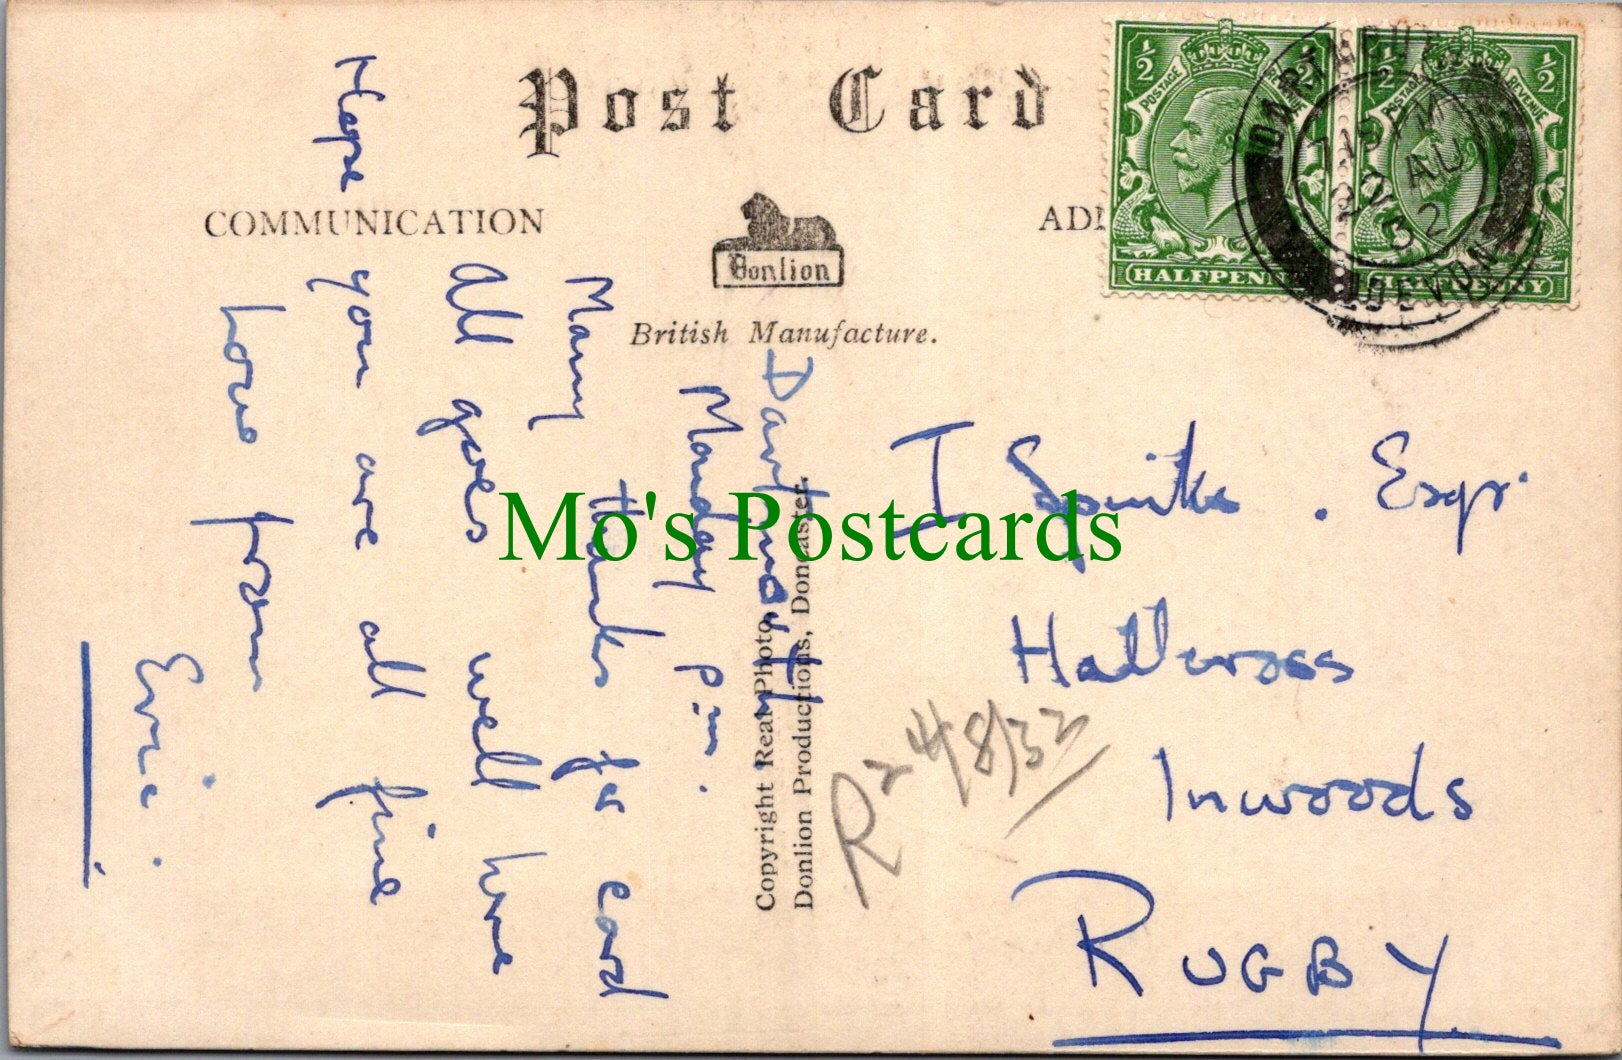 Post Card
COMMUNICATION
ADD
Donlion
British Manufacture.
½ ½
POSTAGE REVENUE
HALFPENNY
½ ½
POSTAGE REVENUE
HALFPENNY
DARTMOUTH
7 15 PM
22 AU
32
DEVON
Dartmouth
Monday p.m.
Many thanks for card
All goes well here
Hope you are all fine
Love from
Eric.
Copyright Real Photo,
Donlion Productions, Doncaster.
Mo's Postcards
Spinks . Esqr.
Hallcross
Inwoods
RUGBY
R 24/8/32